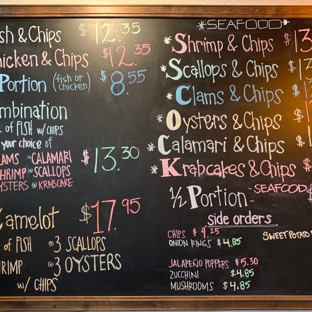 sh & Chips $12.35
hicken & Chips $12.35
Portion (fish or chicken) $8.55
mbination
L of FISH w/ CHIPS
your choice of
LAMS CALAMARI
HRIMP SCALLOPS
YSTERS KRABCAKE
$13.30
Camelot $17.95
of FISH 3 SCALLOPS
HRIMP 3 OYSTERS
w/ CHIPS
*SEAFOOD*
*Shrimp & Chips $13
*Scallops & Chips $13
*Clams & Chips $
*Oysters & Chips $1
*Calamari & Chips $
*Krabcakes & Chips $
1/2 Portion -SEAFOOD $
side orders
CHIPS $4.25
ONION RINGS $4.85
SWEET POTATO
JALAPEÑO POPPERS $5.30
ZUCCHINI $4.85
MUSHROOMS $4.85